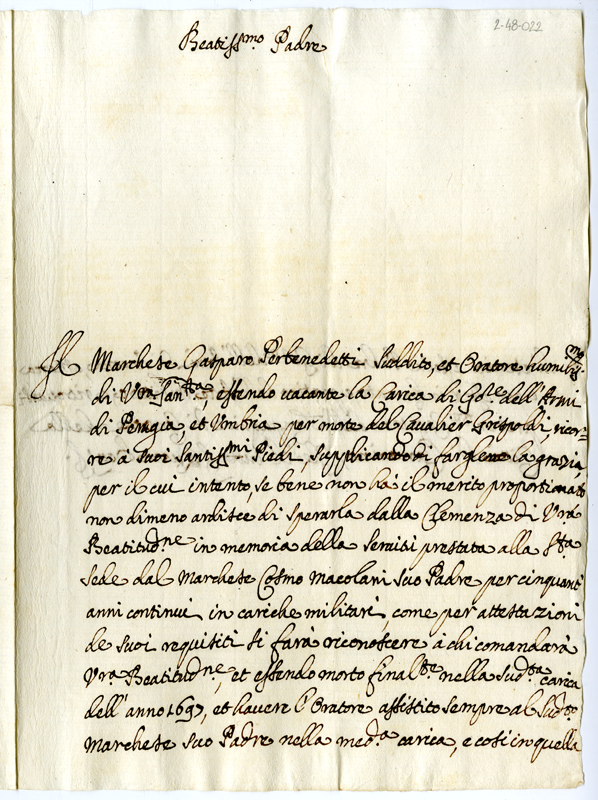 2-48-022
Beatiss.mo Padre
Il Marchese Gasparo Perbenedetti Suddito, et Oratore humiliss.mo
di V.ra San.ta, essendo vacante la Carica di G.le dell'Armi
di Perugia, et Umbria per morte del Cavalier Grispoldi, ricor=
re à suoi Santiss.mi Piedi, supplicando di fargliene la grazia,
per il cui intento, se bene non ha il merito proportionato
non dimeno ardisce di sperarla dalla Clemenza di V.ra
Beatitud.ne in memoria della servitù prestata alla S.ta
Sede dal Marchese Cosmo Macolani suo Padre per cinquant
anni continui in cariche militari, come per attestazioni
de suoi requisiti si farà riconoscere à chi comandarà
V.ra Beatitud.ne, et essendo morto final.te nella sud.ta carica
dell'anno 1697, et havere l'Oratore assistito sempre al Sud.to
Marchese suo Padre nella med.a carica, e così in quella